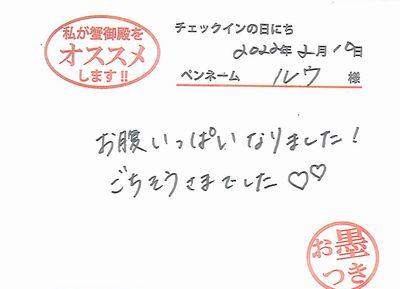 私が蟹御殿を
オススメ
します!!
チェックインの日にち
2022年2月10日
ペンネーム ルウ 様
お腹いっぱいなりました!
ごちそうさまでした♡♡
お墨
つき